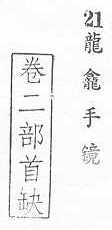 21龍龕手镜
卷二部首缺